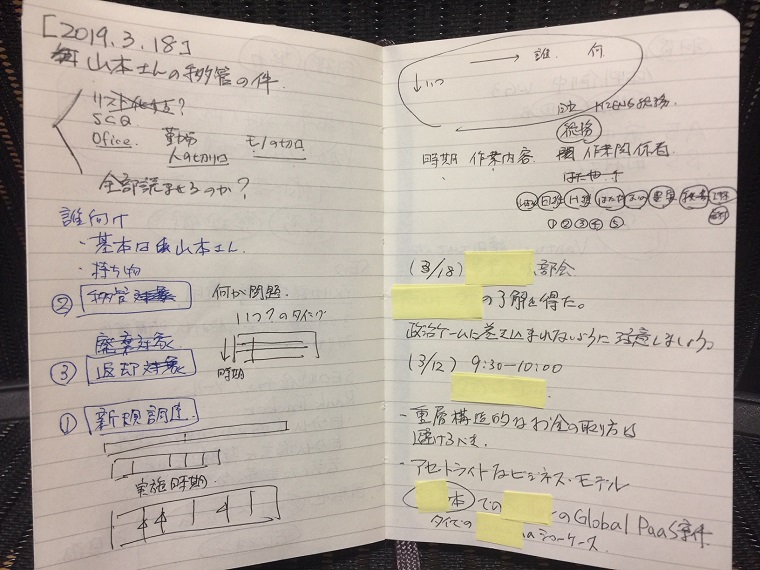 [2019.3.18]
山本さんの移管の件.
リスト化する?
SCQ
Ofice. 勤務 モノの切口
人の切り口
全部読ませるのか?
誰向け
・基本は山本さん.
・持ち物
② 移管対象 何が問題.
いつ?のタイミング
時期
廃棄対象
③ 返却対象
① 新規調達.
実施時期.
→ 誰 何
↓いつ
総務.
総務
時期 作業内容 作業関係者
①②③④ ⑤
(3/18) 部会
の了解を得た。
政治ゲームに巻き込まれないように注意しましょう。
(3/12) 9:30-10:00
・重層構造的なお金の取り方は
避けるべき.
・アセットライトなビジネス・モデル
本での のGlobal PaaS案件
タイでの aショーケース.